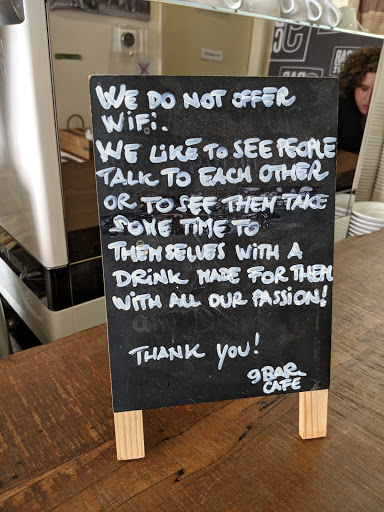 WE DO NOT OFFER
WiFi.
WE LIKE TO SEE PEOPLE
TALK TO EACH OTHER
OR TO SEE THEM TAKE
SOME TIME TO
THEMSELVES WITH A
DRINK MADE FOR THEM
WITH ALL OUR PASSION!
THANK YOU!
9BAR
CAFE